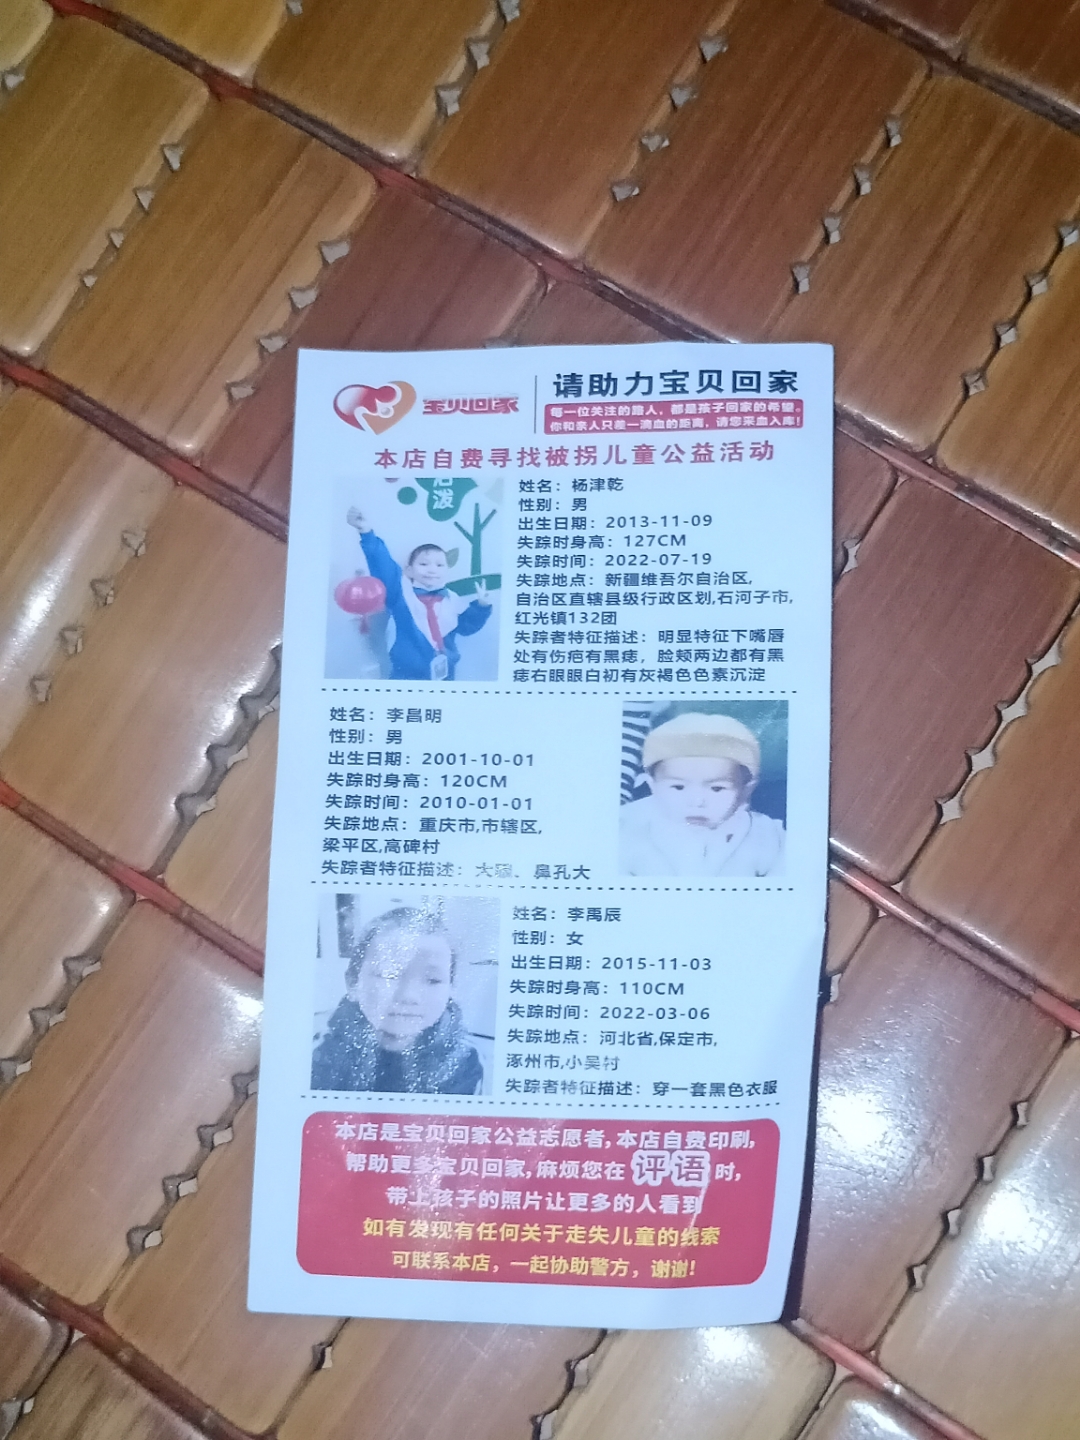 宝贝回家
请助力宝贝回家
每一位关注的路人，都是孩子回家的希望。
你和亲人只差一滴血的距离，请您采血入库！
本店自费寻找被拐儿童公益活动
活
泼
姓名：杨津乾
性别：男
出生日期：2013-11-09
失踪时身高：127CM
失踪时间：2022-07-19
失踪地点：新疆维吾尔自治区,
自治区直辖县级行政区划,石河子市,
红光镇132团
失踪者特征描述：明显特征下嘴唇
处有伤疤有黑痣，脸颊两边都有黑
痣右眼眼白初有灰褐色色素沉淀
姓名：李昌明
性别：男
出生日期：2001-10-01
失踪时身高：120CM
失踪时间：2010-01-01
失踪地点：重庆市,市辖区,
梁平区,高碑村
失踪者特征描述：大、鼻孔大
姓名：李禹辰
性别：女
出生日期：2015-11-03
失踪时身高：110CM
失踪时间：2022-03-06
失踪地点：河北省,保定市,
涿州市,小吴村
失踪者特征描述：穿一套黑色衣服
本店是宝贝回家公益志愿者,本店自费印刷,
帮助更多宝贝回家,麻烦您在 评语 时,
带上孩子的照片让更多的人看到
如有发现有任何关于走失儿童的线索
可联系本店，一起协助警方，谢谢!